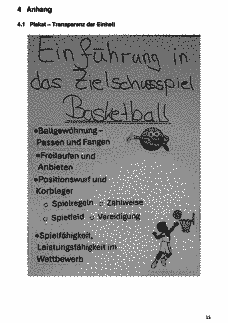 4 Anhang
4.1 Plakat – Transparenz der Einheit
Einführung in
das Zielschussspiel
Basketball
•Ballgewöhnung –
Passen und Fangen
•Freilaufen und
Anbieten
•Positionswurf und
Korbleger
o Spielregeln o Zählweise
o Spielfeld o Verteidigung
•Spielfähigkeit,
Leistungsfähigkeit im
Wettbewerb